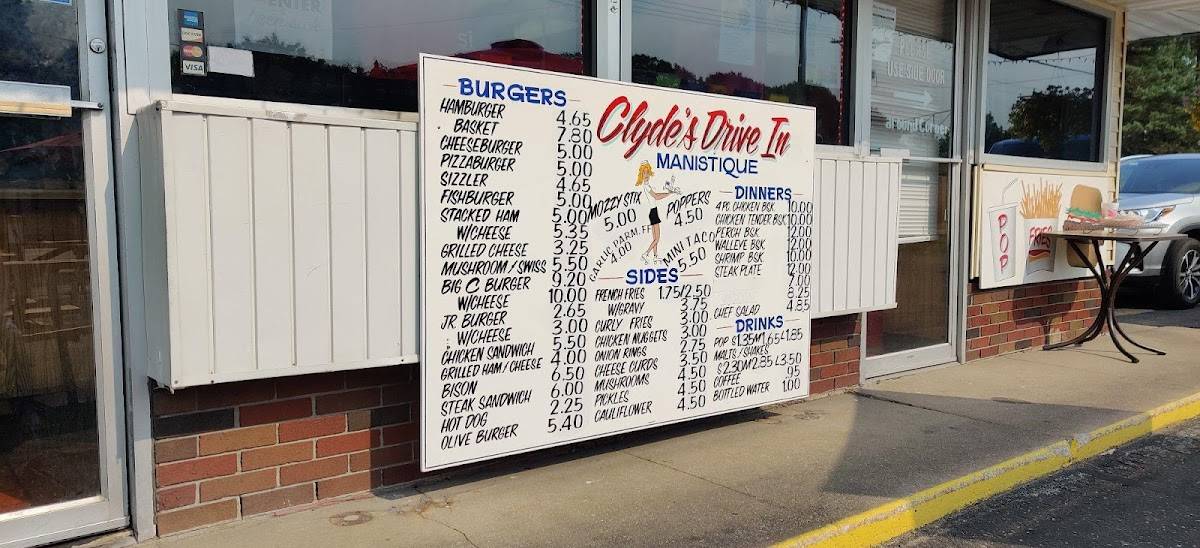 AMERICAN EXPRESS
DISCOVER
VISA
BURGERS
HAMBURGER 4.65
BASKET 7.80
CHEESEBURGER 5.00
PIZZABURGER 5.00
SIZZLER 4.65
FISHBURGER 5.00
STACKED HAM 5.00
W/CHEESE 5.35
GRILLED CHEESE 3.25
MUSHROOM/SWISS 5.50
BIG C BURGER 9.20
W/CHEESE 10.00
JR. BURGER 2.65
W/CHEESE 3.00
CHICKEN SANDWICH 5.50
GRILLED HAM/CHEESE 4.00
BISON 6.50
STEAK SANDWICH 6.00
HOT DOG 2.25
OLIVE BURGER 5.40
Clyde's Drive In
MANISTIQUE
MOZZY STIX 5.00
POPPERS 4.50
GARLIC PARM. FF 4.00
MINI TACO 5.50
SIDES
FRENCH FRIES 1.75/2.50
W/GRAVY 3.75
CURLY FRIES 3.00
CHICKEN NUGGETS 3.00
ONION RINGS 2.75
CHEESE CURDS 3.50
MUSHROOMS 4.50
PICKLES 4.50
CAULIFLOWER 4.50
DINNERS
4 PC CHICKEN BSK 10.00
CHICKEN TENDER BSK 10.00
PERCH BSK 12.00
WALLEYE BSK 12.00
SHRIMP BSK 10.00
STEAK PLATE 12.00
7.00
8.25
CHEF SALAD 4.85
DRINKS
POP S 1.35 M 1.65 L 1.85
MALTS/SHAKES
S 2.30 M 2.85 L 3.50
COFFEE .95
BOTTLED WATER 1.00
USE SIDE DOOR
around Corner
POP
FRIES